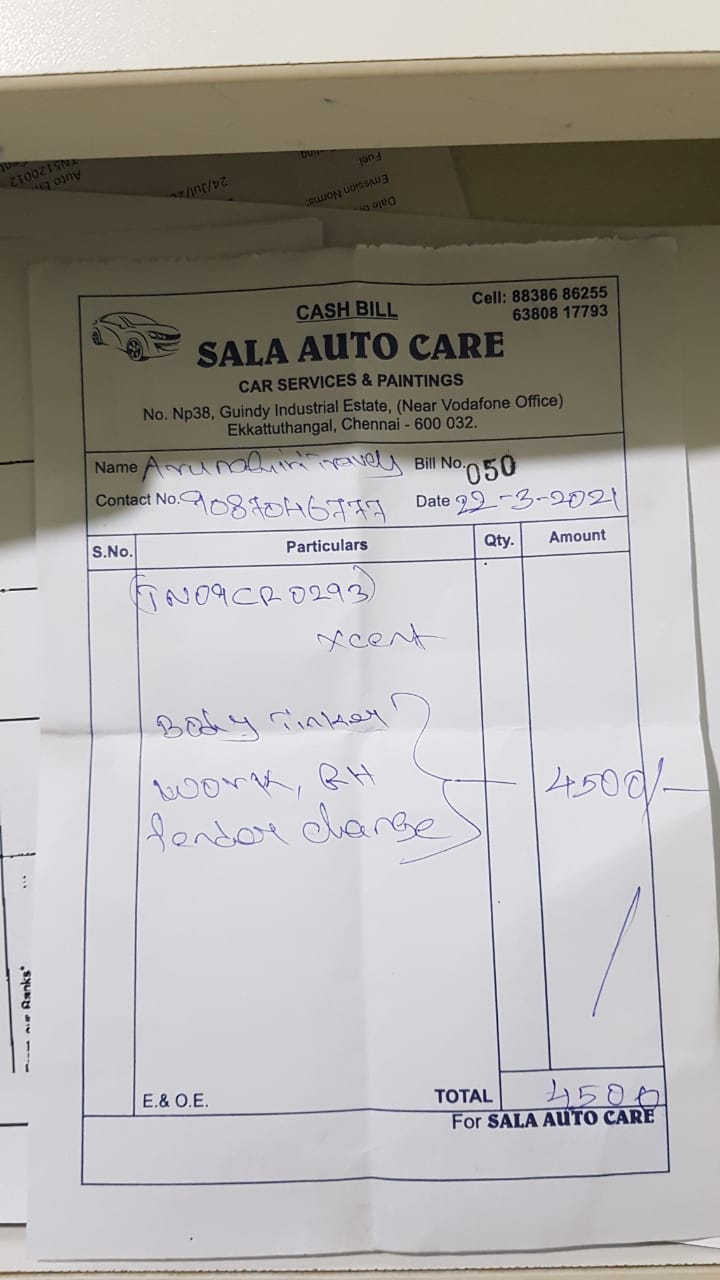 TN512001Z
Auto
24/Jul/
Fuel
Emission Norms:
Date
CASH BILL
Cell: 88386 86255
63808 17793
SALA AUTO CARE
CAR SERVICES & PAINTINGS
No. Np38, Guindy Industrial Estate, (Near Vodafone Office)
Ekkattuthangal, Chennai - 600 032.
Name Arunahiri Travels Bill No. 050
Contact No. 9087046777 Date 22-3-2021
S.No. Particulars Qty. Amount
(TN09CR0293)
xcent
Body Tinker
work, RH 4500/-
fender change
E.& O.E. TOTAL 4500
For SALA AUTO CARE
our Banks*